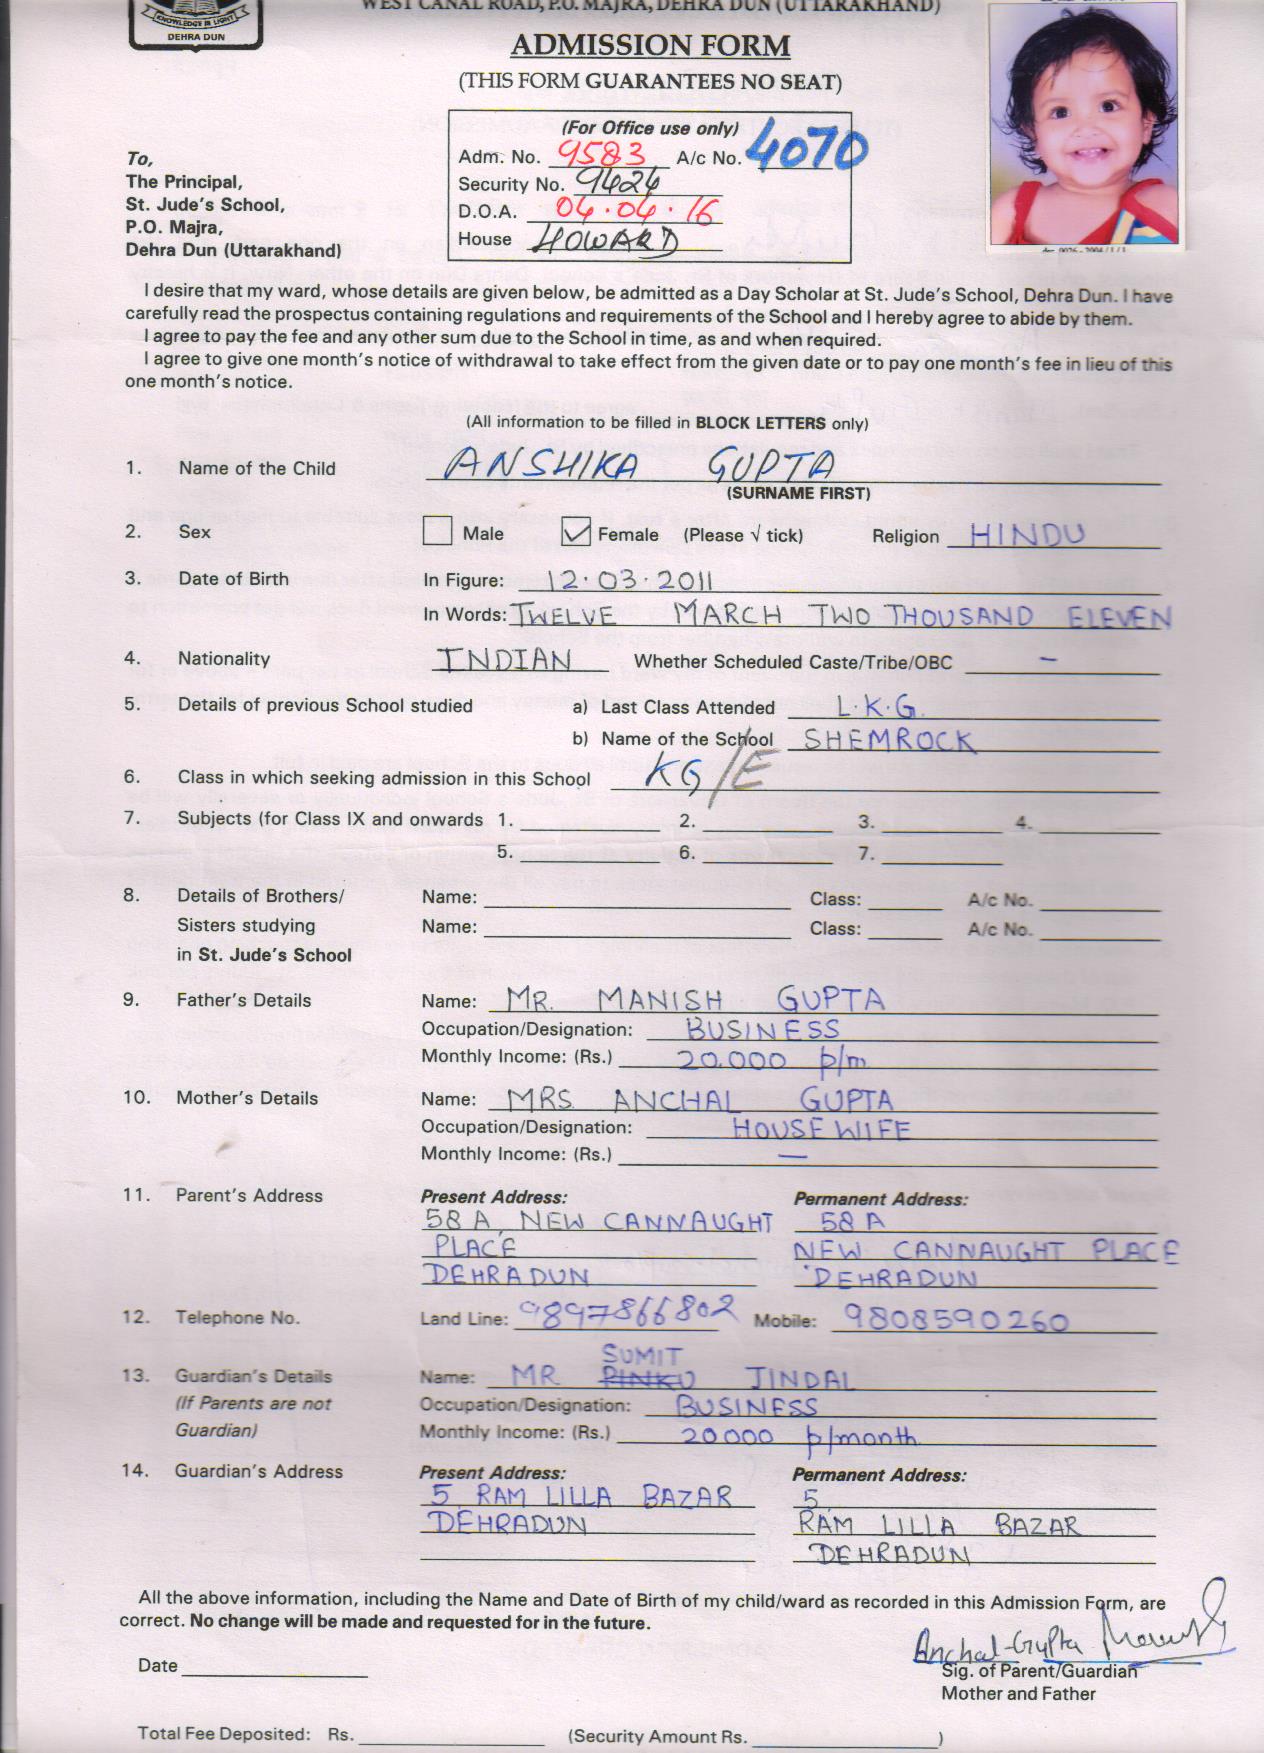 WEST CANAL ROAD, P.O. MAJRA, DEHRA DUN (UTTARAKHAND)
KNOWLEDGE IS LIGHT
DEHRA DUN
ADMISSION FORM
(THIS FORM GUARANTEES NO SEAT)
(For Office use only)
Adm. No. 9583 A/c No. 4070
Security No. 9424
D.O.A. 04.04.16
House HOWARD
To,
The Principal,
St. Jude's School,
P.O. Majra,
Dehra Dun (Uttarakhand)
I desire that my ward, whose details are given below, be admitted as a Day Scholar at St. Jude's School, Dehra Dun. I have
carefully read the prospectus containing regulations and requirements of the School and I hereby agree to abide by them.
I agree to pay the fee and any other sum due to the School in time, as and when required.
I agree to give one month's notice of withdrawal to take effect from the given date or to pay one month's fee in lieu of this
one month's notice.
(All information to be filled in BLOCK LETTERS only)
1. Name of the Child ANSHIKA GUPTA
(SURNAME FIRST)
2. Sex Male ✓ Female (Please √ tick) Religion HINDU
3. Date of Birth In Figure: 12.03.2011
In Words: TWELVE MARCH TWO THOUSAND ELEVEN
4. Nationality INDIAN Whether Scheduled Caste/Tribe/OBC –
5. Details of previous School studied a) Last Class Attended L.K.G.
b) Name of the School SHEMROCK
6. Class in which seeking admission in this School KG/E
7. Subjects (for Class IX and onwards 1. 2. 3. 4.
5. 6. 7.
8. Details of Brothers/ Name: Class: A/c No.
Sisters studying Name: Class: A/c No.
in St. Jude's School
9. Father's Details Name: MR. MANISH GUPTA
Occupation/Designation: BUSINESS
Monthly Income: (Rs.) 20.000 p/m
10. Mother's Details Name: MRS. ANCHAL GUPTA
Occupation/Designation: HOUSE WIFE
Monthly Income: (Rs.) —
11. Parent's Address Present Address: Permanent Address:
58 A, NEW CANNAUGHT 58 A
PLACE NEW CANNAUGHT PLACE
DEHRADUN DEHRADUN
12. Telephone No. Land Line: 9897866802 Mobile: 9808590260
SUMIT
13. Guardian's Details Name: MR PINKU JINDAL
(If Parents are not Occupation/Designation: BUSINESS
Guardian) Monthly Income: (Rs.) 20000 p/month
14. Guardian's Address Present Address: Permanent Address:
5, RAM LILLA BAZAR 5,
DEHRADUN RAM LILLA BAZAR
DEHRADUN
All the above information, including the Name and Date of Birth of my child/ward as recorded in this Admission Form, are
correct. No change will be made and requested for in the future.
Anchal Gupta
Date Sig. of Parent/Guardian
Mother and Father
Total Fee Deposited: Rs. (Security Amount Rs. )